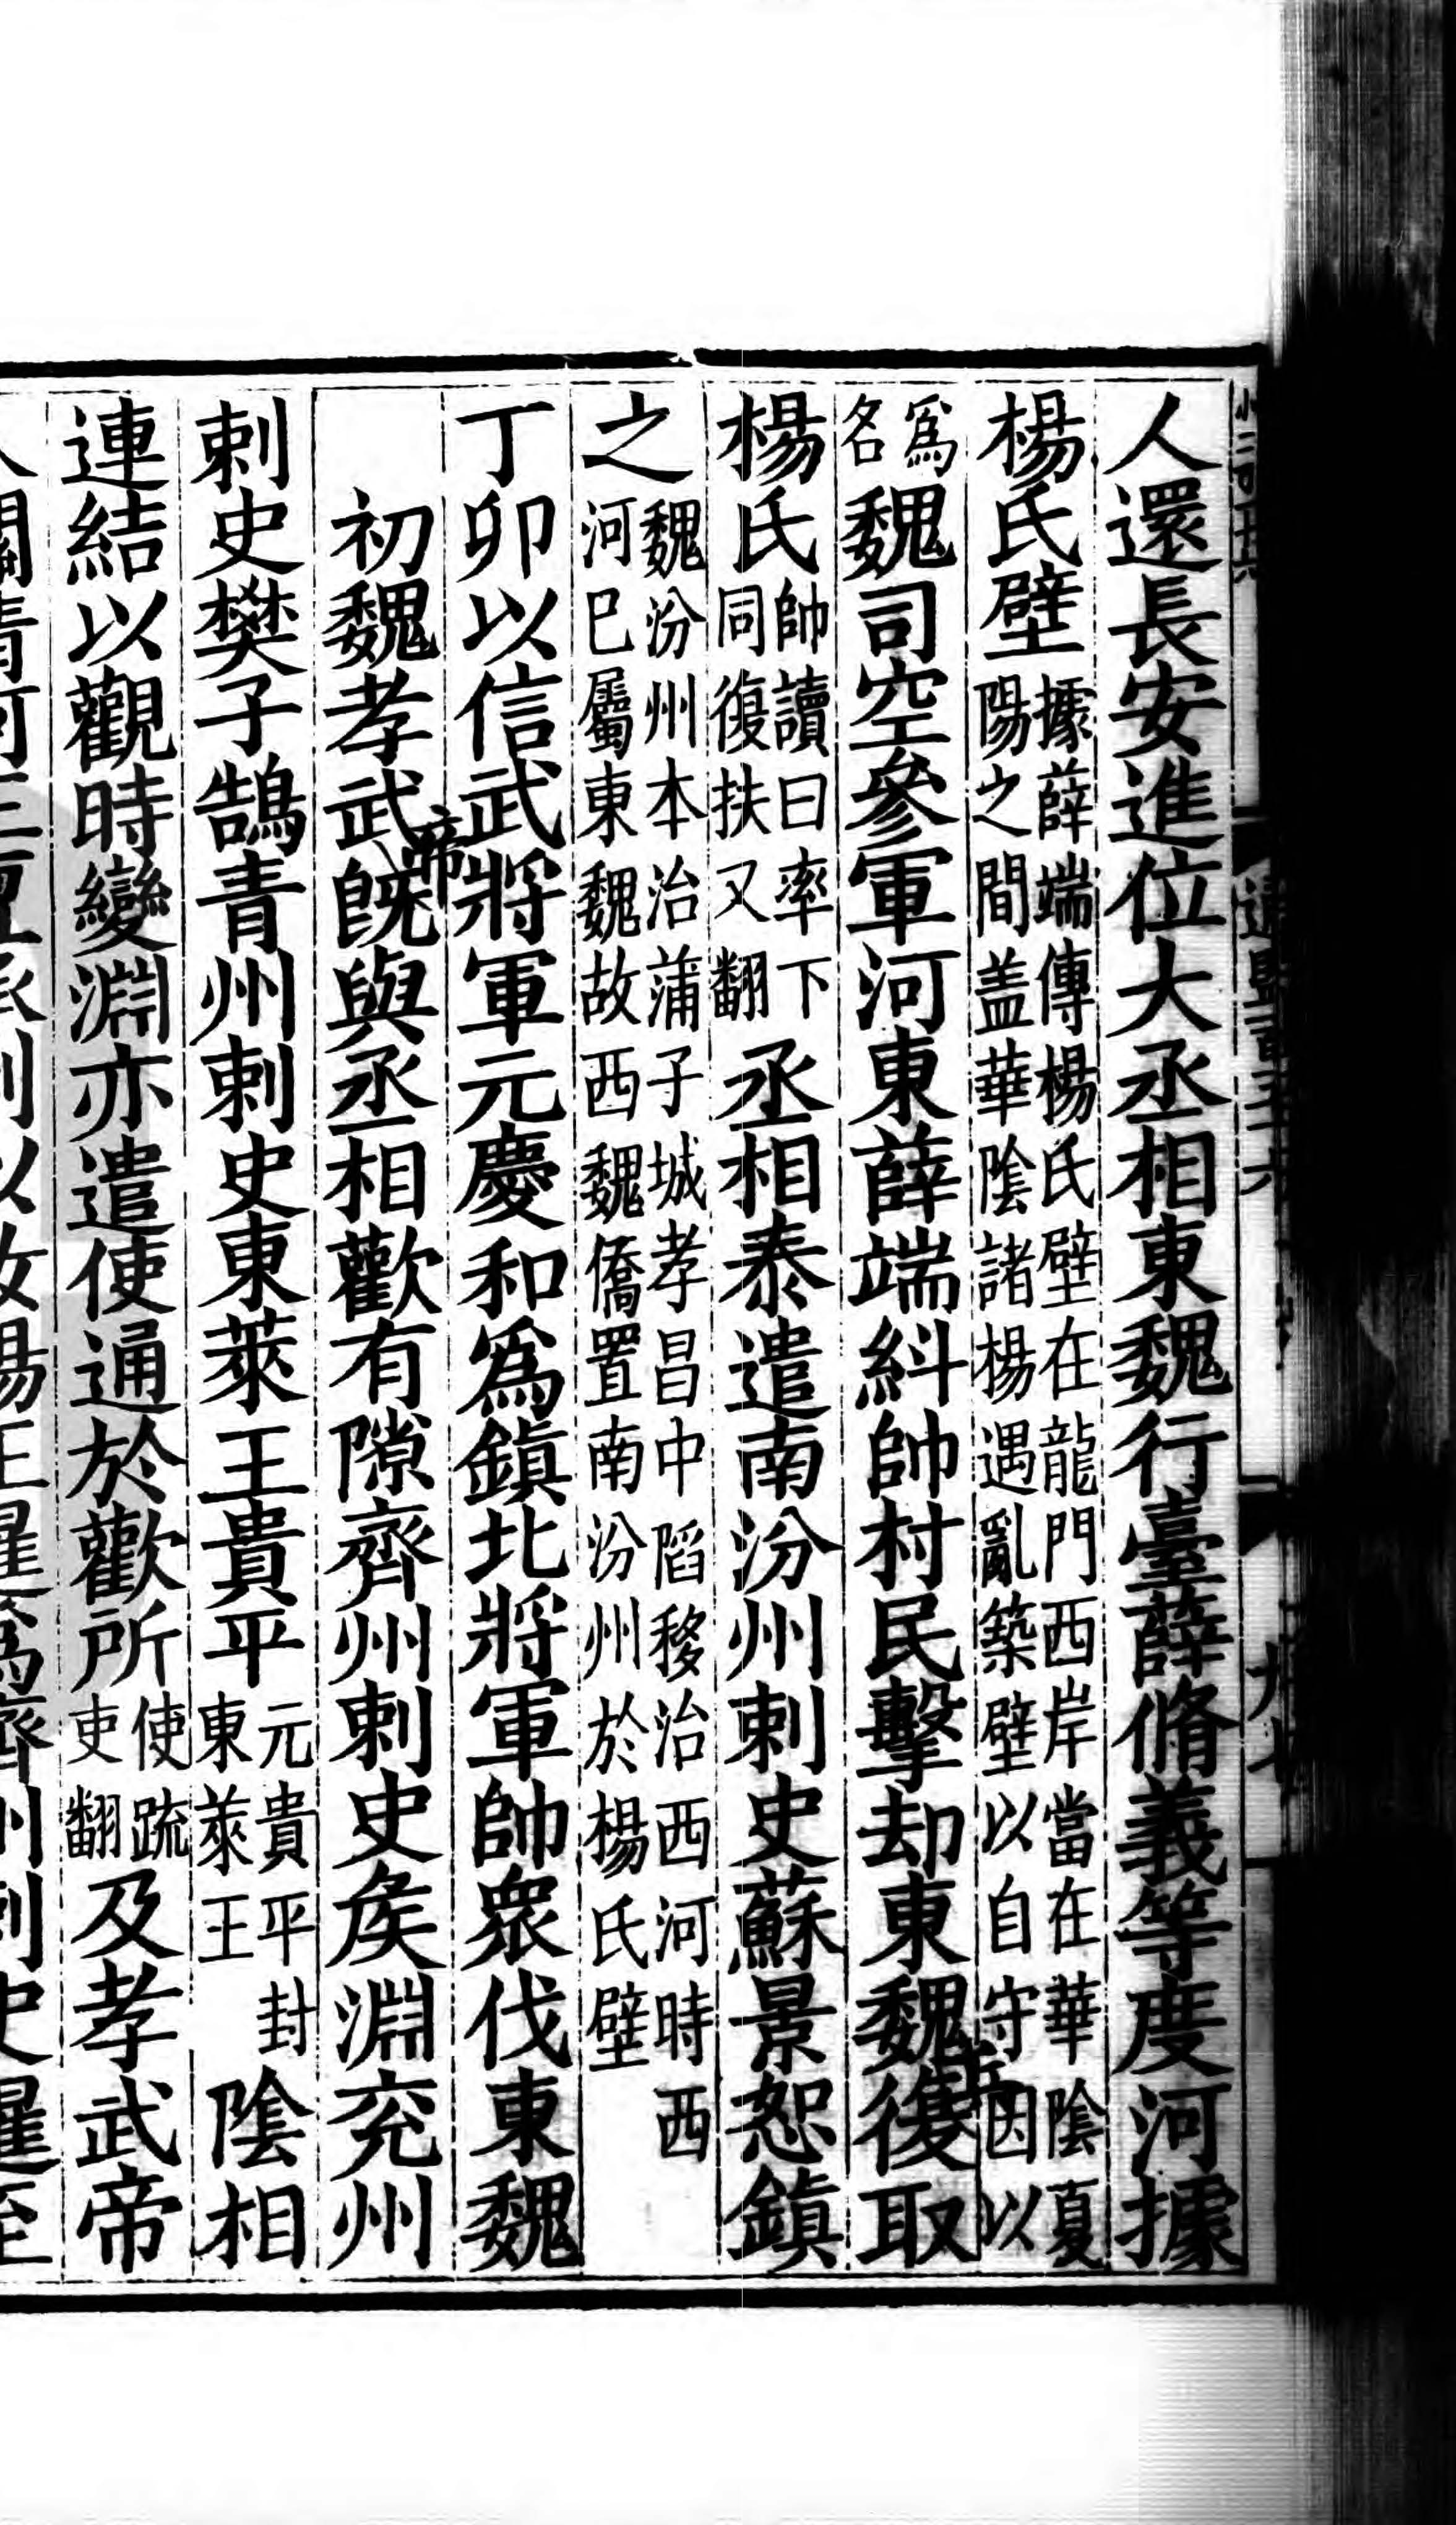 人還長安進位大丞相東魏行臺薛脩義等度河據
楊氏壁據薛端傳楊氏壁在龍門西岸當在華陰夏陽之間盖華陰諸楊遇亂築壁以自守因以
爲名魏司空參軍河東薛端糾帥村民擊却東魏復取
楊氏帥讀曰率下同復扶又翻丞相泰遣南汾州刺史蘇景恕鎮
之魏汾州本治蒲子城孝昌中陷移治西河時西河已屬東魏故西魏僑置南汾州於楊氏壁
丁卯以信武將軍元慶和爲鎮北將軍帥衆伐東魏
初魏孝武帝旣與丞相歡有隙齊州刺史矦淵兖州
刺史樊子鵠青州刺史東萊王貴平元貴平封東萊王陰相
連結以觀時變淵亦遣使通於歡所使疏吏翻及孝武帝